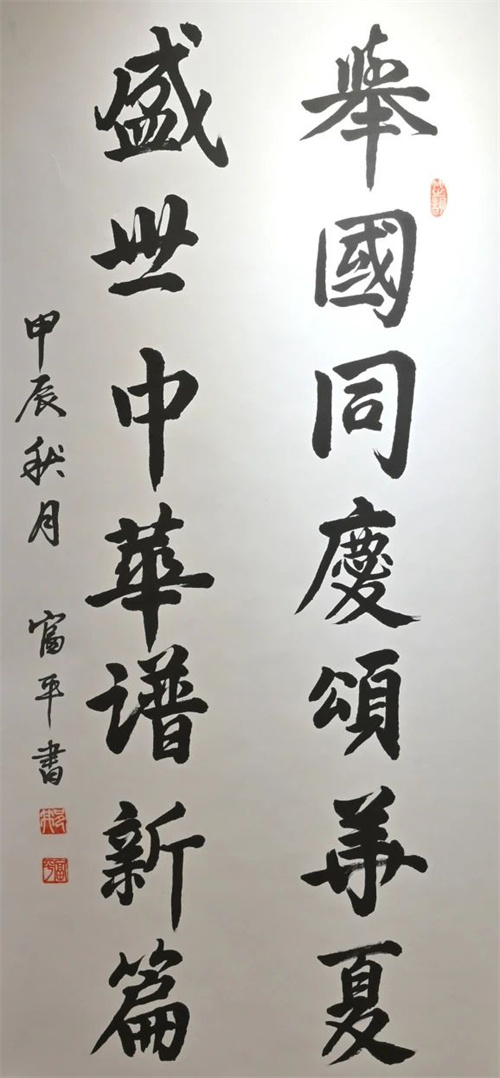 舉國同慶頌华夏
盛世中華譜新篇
甲辰秋月 富平書